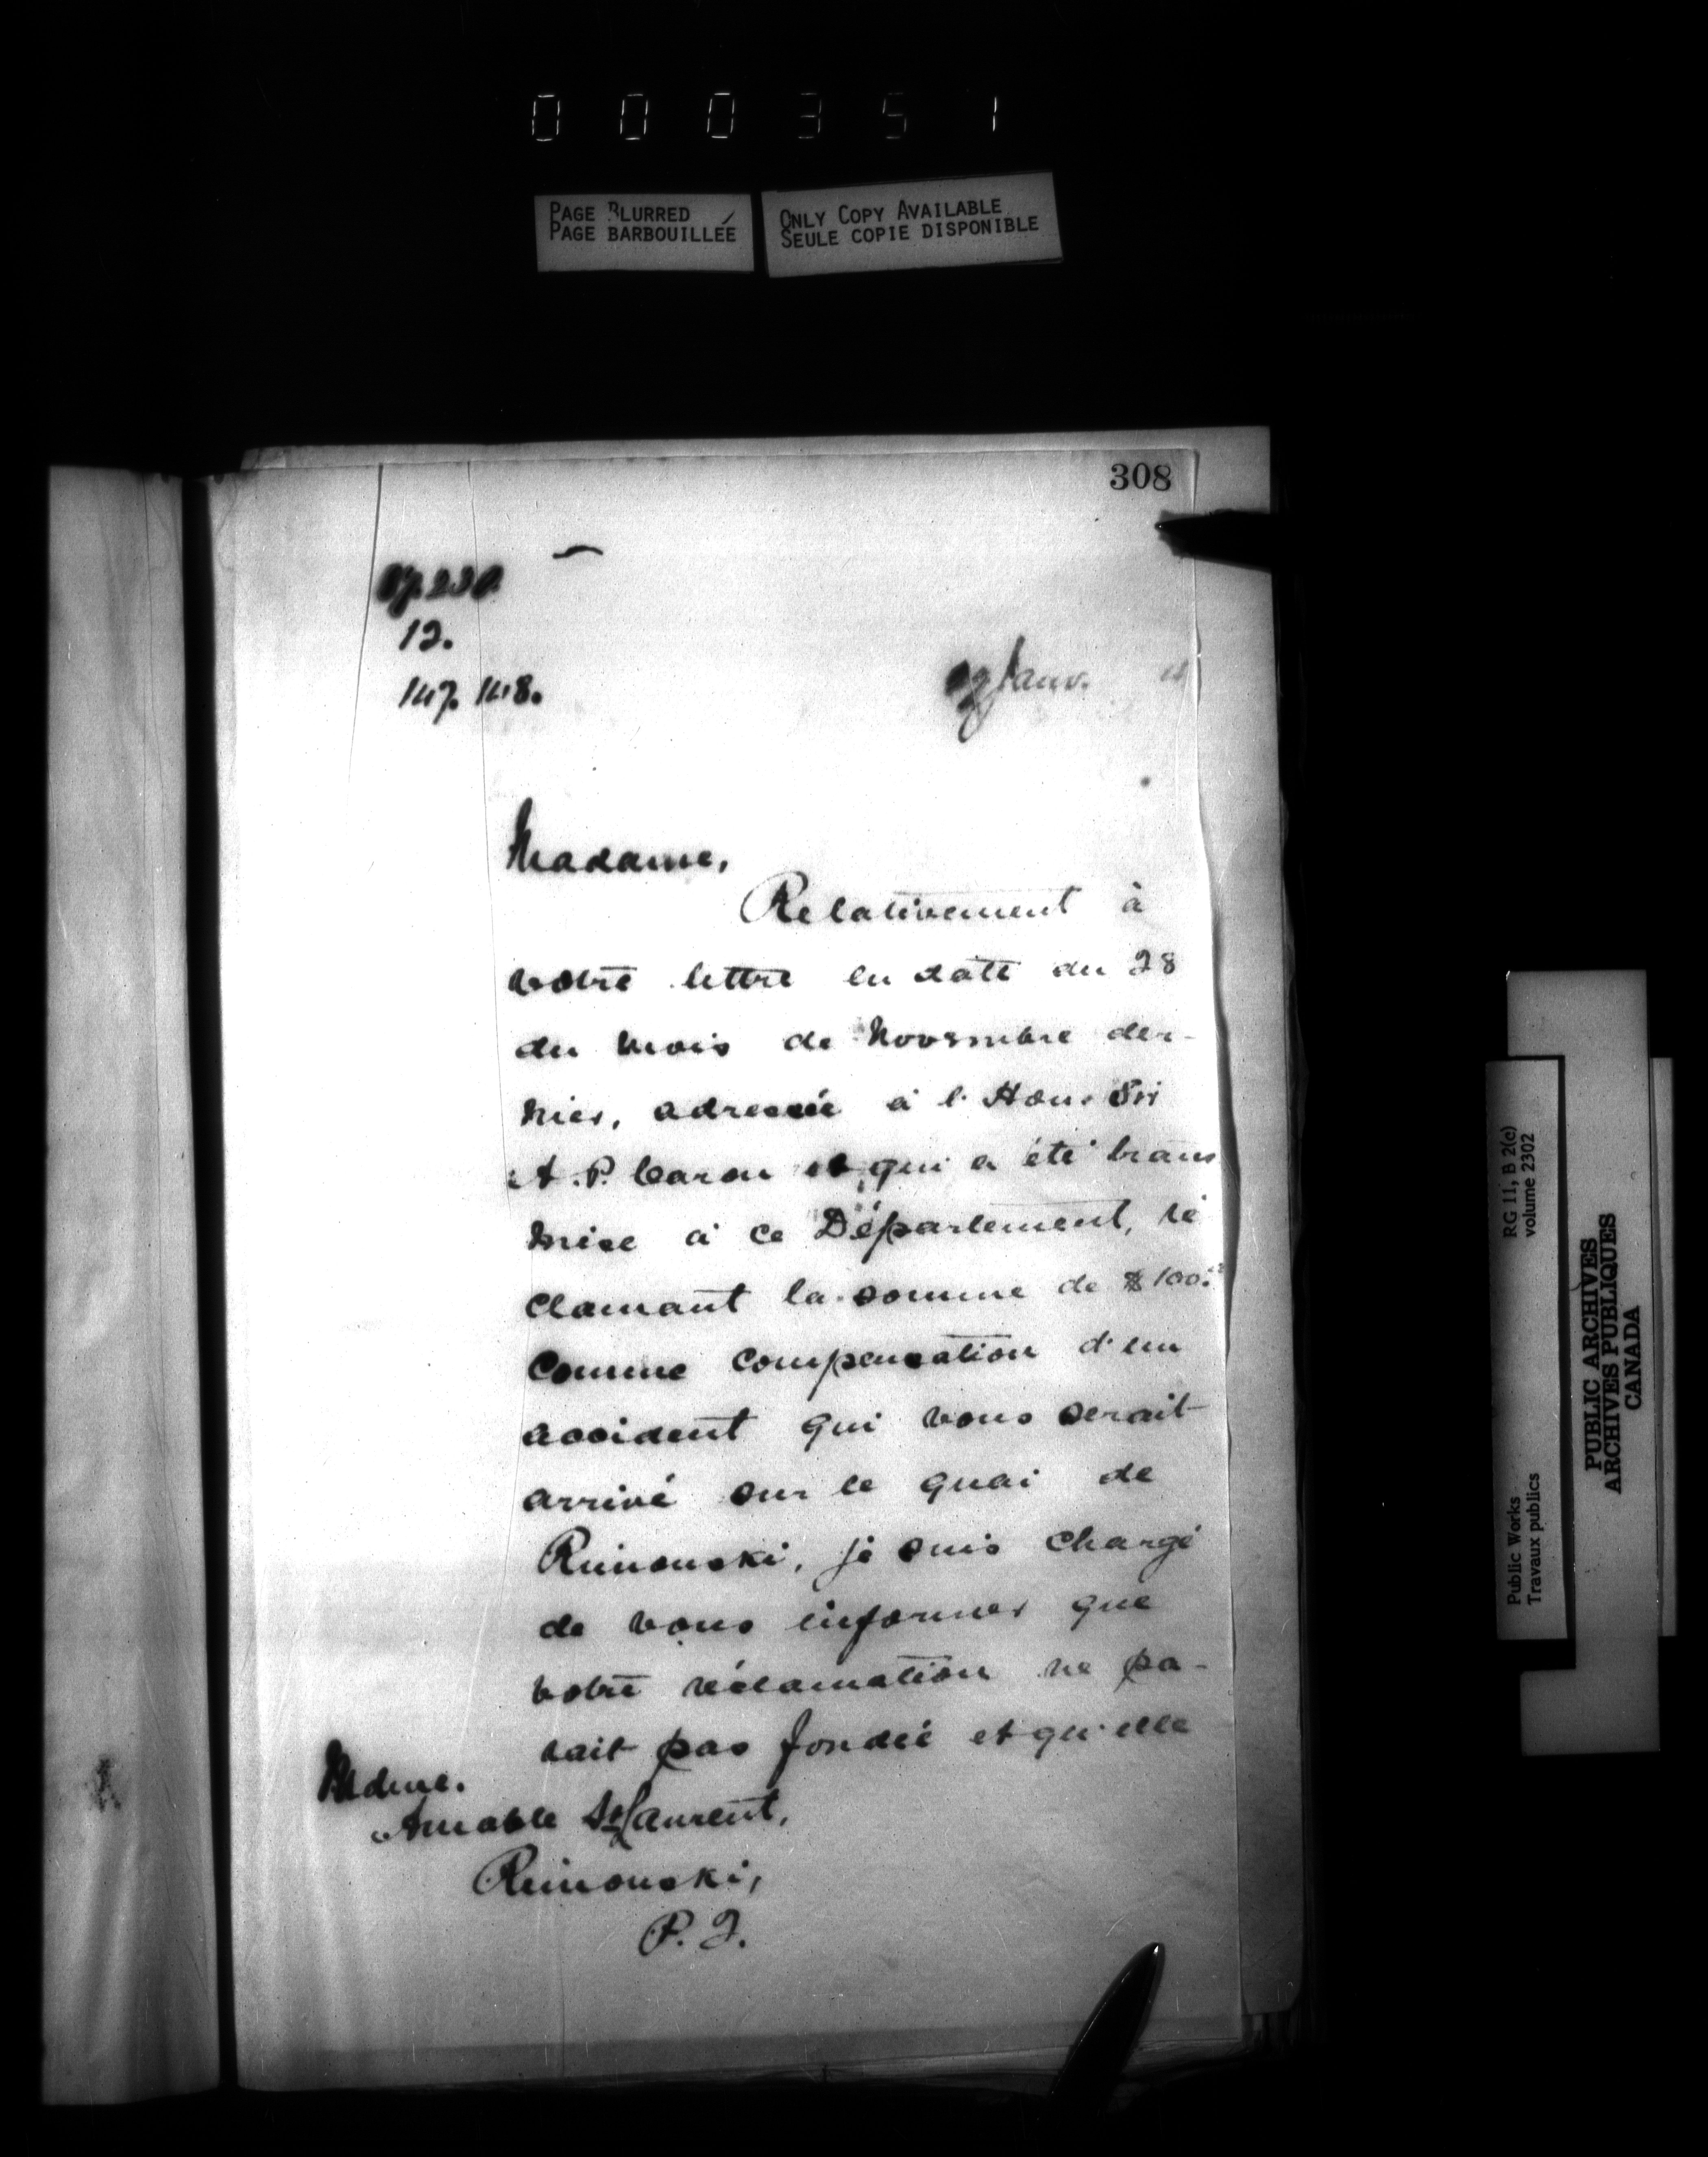 000351
PAGE BLURRED
PAGE BARBOUILLÉE
ONLY COPY AVAILABLE
SEULE COPIE DISPONIBLE
308
12.
147. 148.
Janv.
Madame,
Relativement à
votre lettre en date du 28
du mois de Novembre der-
nier, adressée à l'Hon. Sir
A. P. Caron et qui a été trans
mise à ce Département, ré
clamant la somme de $100.
comme compensation d'un
accident qui vous serait
arrivé sur le quai de
Rimouski, je suis chargé
de vous informer que
votre réclamation ne pa-
rait pas fondée et qu'elle
Madme.
Amable St Laurent,
Rimouski,
P. Q.
RG 11, B 2(c)
volume 2302
Public Works
Travaux publics
PUBLIC ARCHIVES
ARCHIVES PUBLIQUES
CANADA